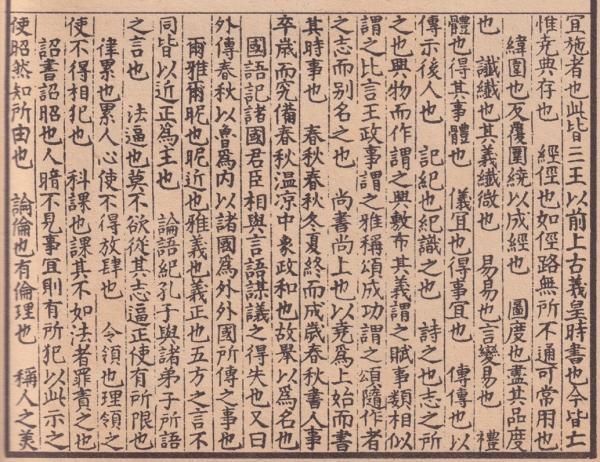 宜施者也此皆三王以前上古羲皇時書也今皆亡
惟尭典存也　經俓也如俓路無所不通可常用也
緯圍也反覆圍繞以成經也　圖度也盡其品度
也　讖纖也其義纖微也　易易也言變易也　禮
體也得其事體也　儀宜也得事宜也　傳傳也以
傳示後人也　記紀也紀識之也　詩之也志之所
之也興物而作謂之興敷布其義謂之賦事類相似
謂之比言王政事謂之雅稱頌成功謂之頌隨作者
之志而别名之也　尚書尚上也以堯爲上始而書
其時事也　春秋春秋冬夏終而成歲春秋書人事
卒歲而究備春秋温凉中象政和也故舉以爲名也
國語記諸國君臣相與言語謀議之得失也又曰
外傳春秋以魯爲内以諸國爲外外國所傳之事也
爾雅爾昵也昵近也雅義也義正也五方之言不
同皆以近正爲主也　論語紀孔子與諸弟子所語
之言也　法逼也莫不欲從其志逼正使有所限也
律累也累人心使不得放肆也　令領也理領之
使不得相犯也　科課也課其不如法者罪責之也
詔書詔昭也人暗不見事宜則有所犯以此示之
使昭然知所由也　論倫也有倫理也　稱人之美